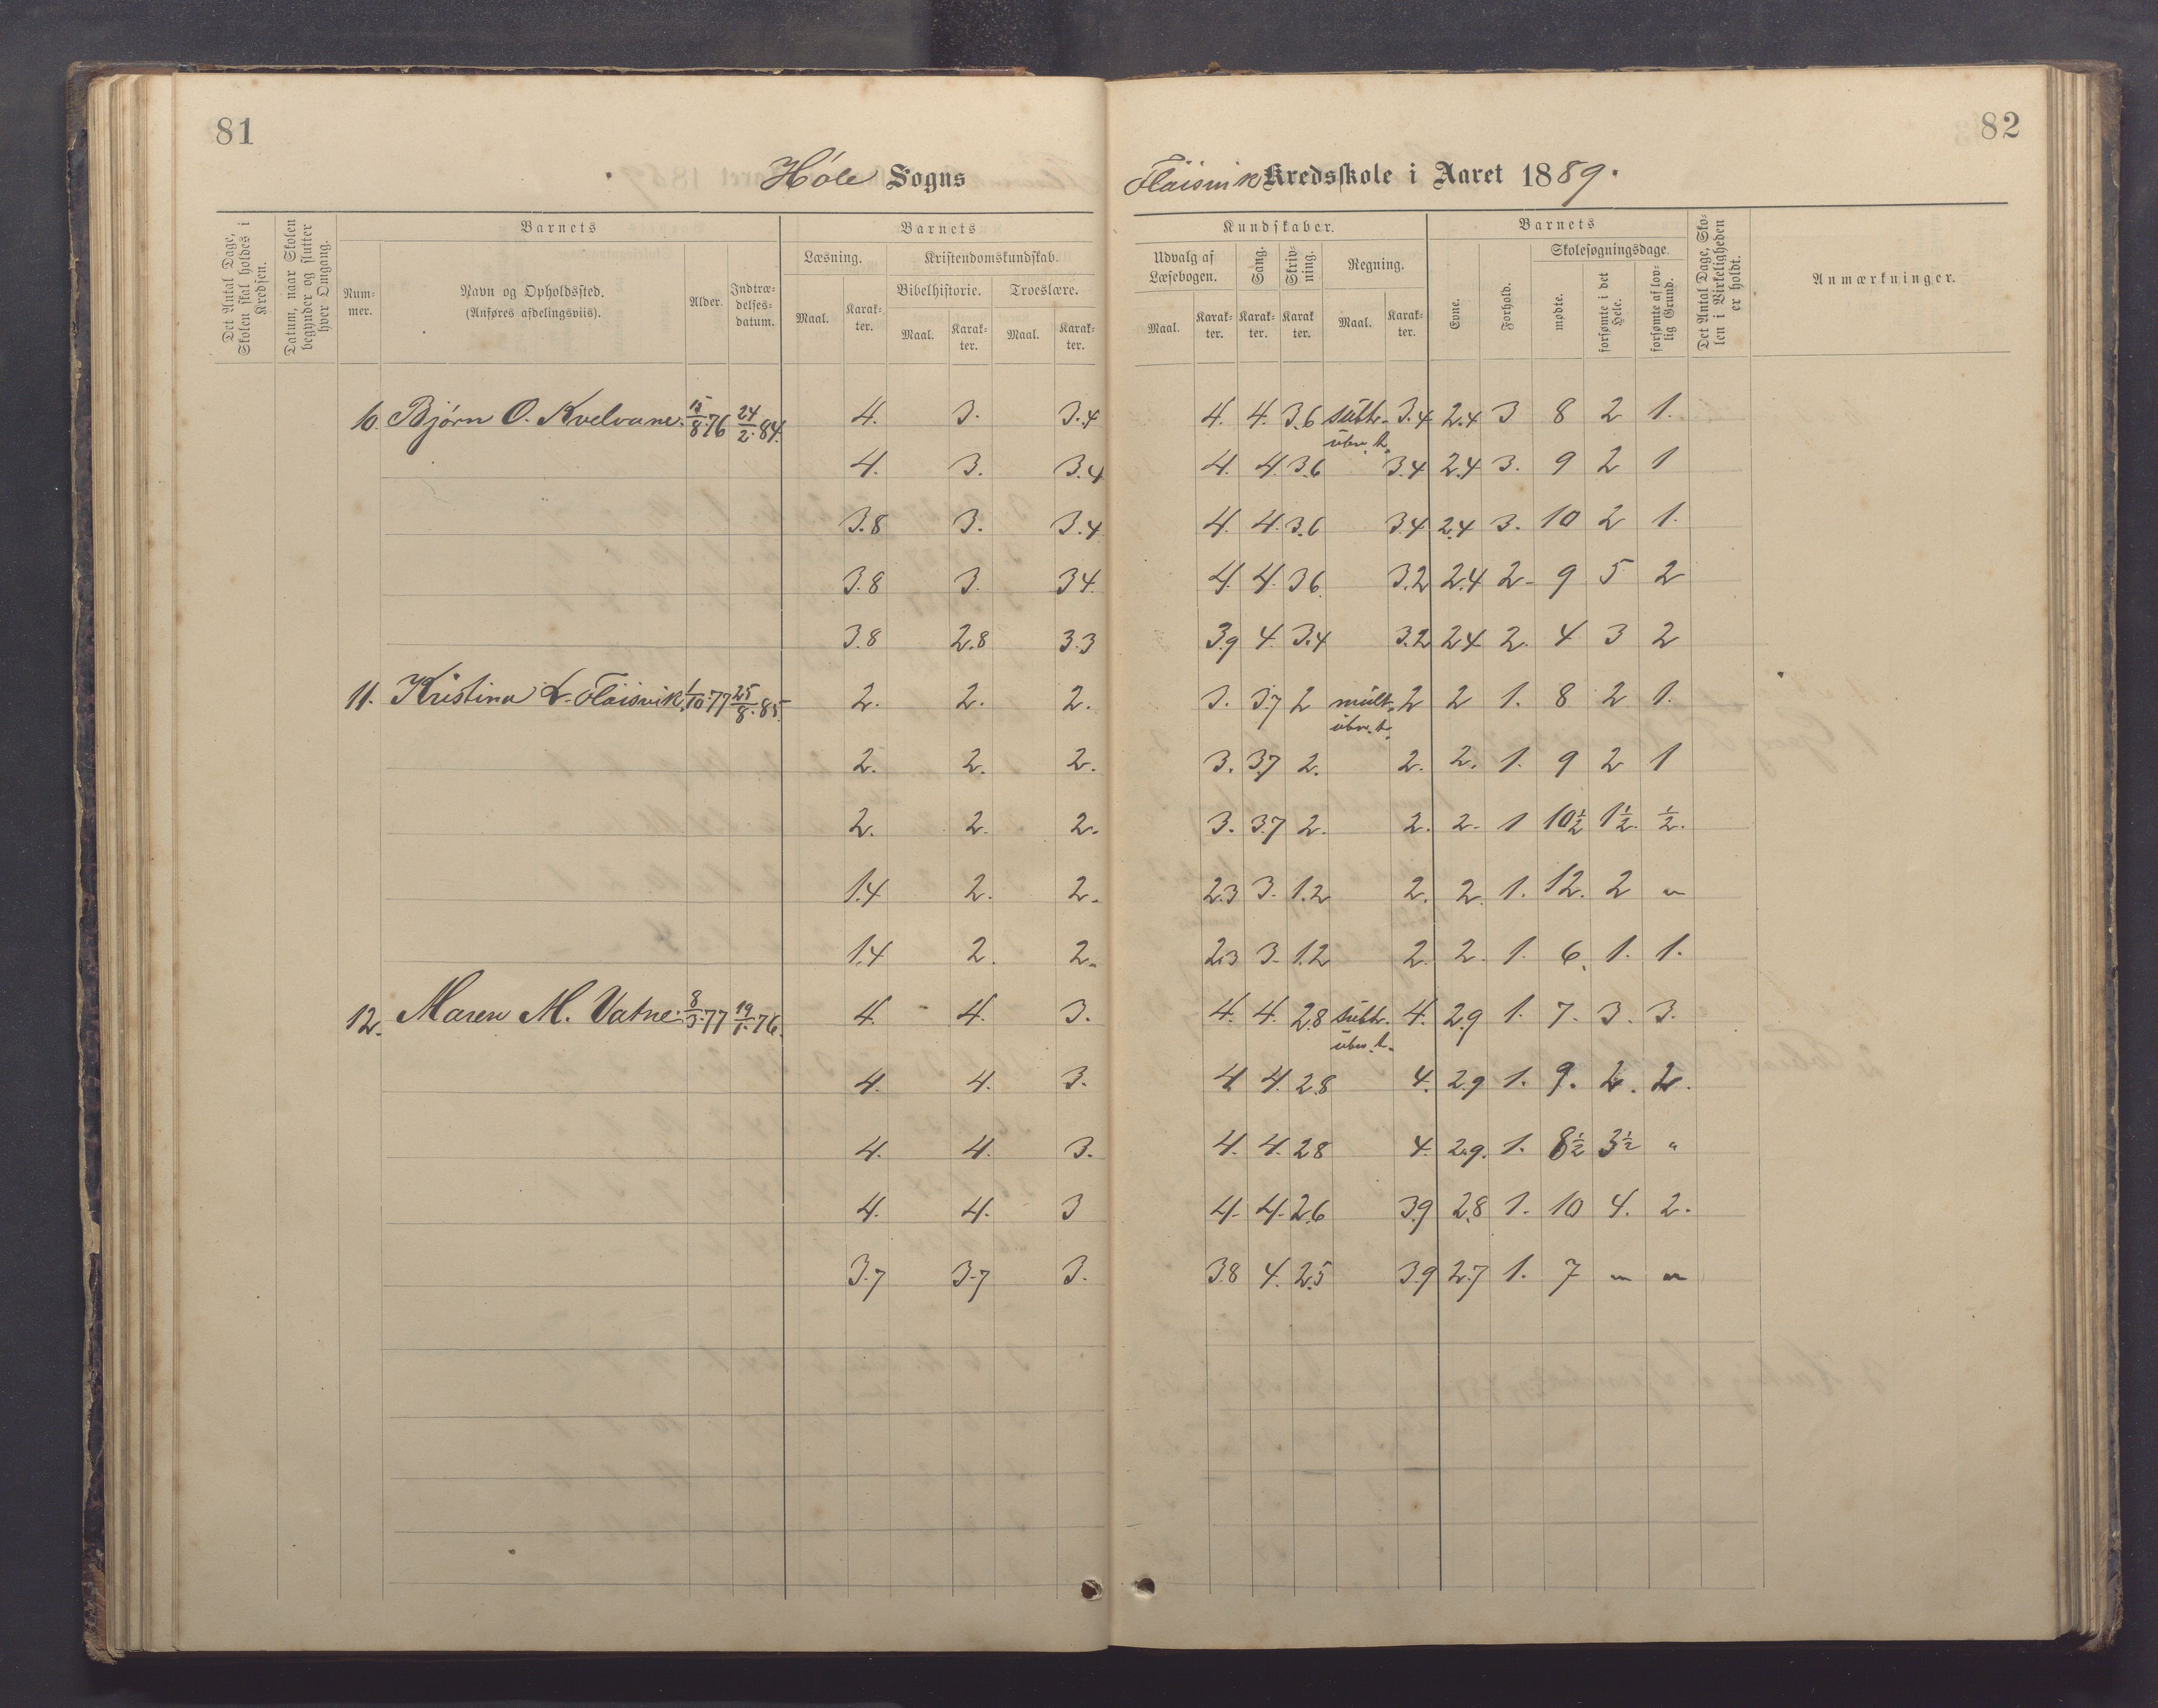 81
82
Høle Sogns
Flaisvik Kredsskole i Aaret 1889.
Det Antal Dage, Skolen skal holdes i Kredsen.
Datum, naar Skolen begynder og slutter hver Omgang.
Barnets
Num-mer.
Navn og Opholdssted.
(Anføres afdelingsviis).
Alder.
Indtræ-delses-datum.
Barnets
Læsning.
Maal.
Karak-ter.
Kristendomskundskab.
Bibelhistorie.
Maal.
Karak-ter.
Troeslære.
Maal.
Karak-ter.
Kundskaber.
Udvalg af Læsebogen.
Maal.
Karak-ter.
Sang.
Karak-ter.
Skriv-ning.
Karak-ter.
Regning.
Maal.
Karak-ter.
Barnets
Evne.
Forhold.
Skolesøgningsdage.
mødte.
forsømte i det Hele.
forsømte af lov-lig Grund.
Det Antal Dage, Sko-len i Virkeligheden er holdt.
Anmærkninger.
10. Bjørn O. Kvelvane. 15/8.76 24/2.84. 4. 3. 3.4 4. 4. 3.6 subtr. ubn. t. 3.4 2.4 3 8 2 1.
4. 3. 3.4 4. 4. 3.6 3.4 2.4 3. 9 2 1
3.8 3. 3.4 4. 4. 3.6 3.4 2.4 3. 10 2 1.
3.8 3. 3.4. 4. 4. 3.6 3.2 2.4 2- 9 5 2
3.8 2.8 3.3 3.9 4. 3.4 3.2 2.4 2. 4 3 2
11. Kristina L. Flaisvik. 1/10.77 25/8.85. 2. 2. 2. 3. 3.7 2 mult. ubn. t. 2 2 1. 8 2 1.
2. 2. 2. 3. 3.7 2. 2. 2. 1. 9 2 1
2. 2. 2. 3. 3.7 2. 2. 2. 1 10½ 1½. ½.
1.4 2. 2. 2.3 3. 1.2 2. 2. 1. 12. 2 "
1.4 2. 2. 2.3 3. 1.2 2. 2. 1. 6. 1. 1.
12. Maren M. Vatne. 8/3.77 19/1.76. 4. 4. 3. 4. 4. 2.8 subtr. ubn. t. 4. 2.9 1. 7. 3. 3.
4. 4. 3. 4 4. 2.8 4. 2.9 1. 9. 2. 2.
4. 4. 3. 4. 4. 2.8 4. 2.9. 1. 8½ 3½ "
4. 4. 3 4. 4. 2.6 3.9 2.8 1. 10 4. 2.
3.7 3.7 3. 3.8 4. 2.5 3.9 2.7 1. 7 " "